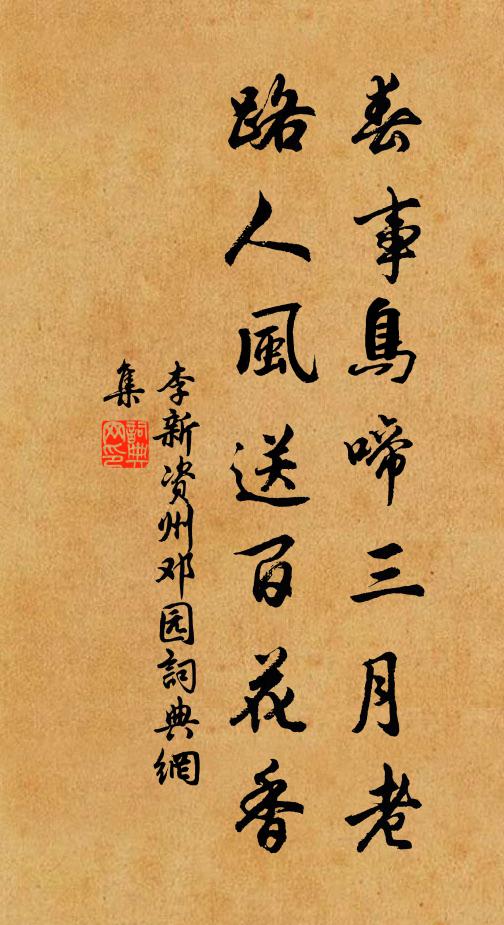 春事鳥啼三月老
路人風送百花香
李新资州邓园詞典網
集
詞典
网印